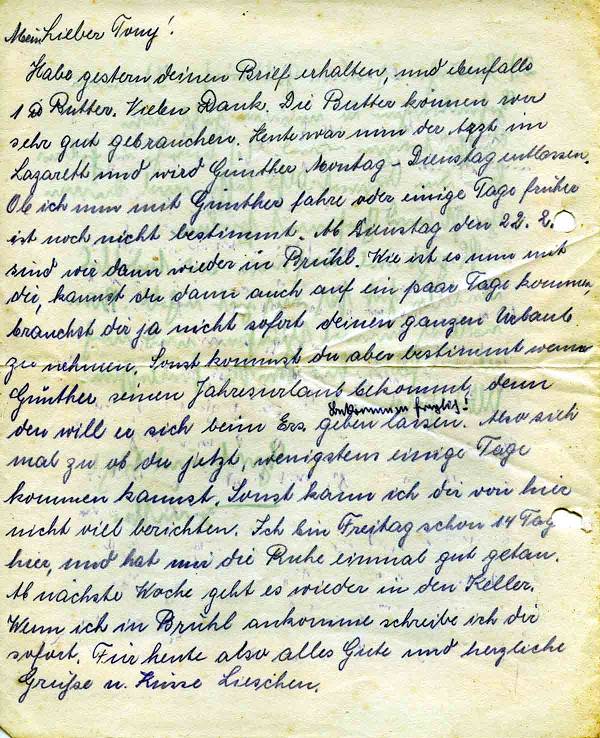 Mein Lieber Tony!
Habe gestern deinen Brief erhalten, und ebenfalls
1 ℔ Butter. Vielen Dank. Die Butter können wir
sehr gut gebrauchen. Heute war nun der Arzt im
Lazarett und wird Günther Montag - Dienstag entlassen.
Ob ich nun mit Günther fahre oder einige Tage früher
ist noch nicht bestimmt. Ab Dienstag den 22. 2.
sind wir dann wieder in Brühl. Wie ist es nun mit
dir, kannst du dann auch auf ein paar Tage kommen,
brauchst dir ja nicht sofort deinen ganzen Urlaub
zu nehmen. Sonst kommst du aber bestimmt wenn
Günther seinen Jahresurlaub bekommt, denn
den will er sich beim Ers. geben lassen. Also sieh
mal zu ob du jetzt, wenigstens einige Tage
kommen kannst. Sonst kann ich dir von hier
nicht viel berichten. Ich bin Freitag schon 14 Tag
hier, und hat mir die Ruhe einmal gut getan.
Ab nächste Woche geht es wieder in den Keller.
Wenn ich in Brühl ankomme schreibe ich dir
sofort. Für heute also alles Gute und herzliche
Grüße u. Küsse Lieschen.